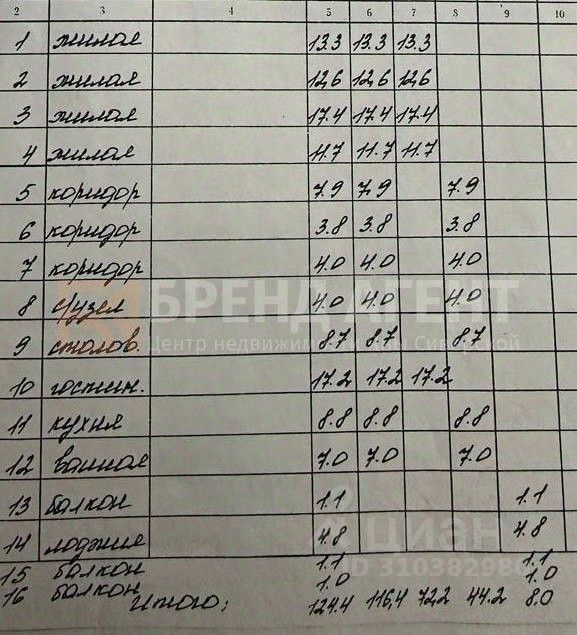 2 3 4 5 6 7 8 9 10
1 жилая 13.3 13.3 13.3
2 жилая 12,6 12,6 12,6
3 жилая 17.4 17.4 17.4
4 жилая 11.7 11.7 11.7
5 коридор 7.9 7,9 7.9
6 коридор 3.8 3.8 3.8
7 коридор 4.0 4.0 4.0
8 с/узел 4.0 4.0 4.0
БРЕНД АГЕНТ
9 столов. 8.7 8.7 8.7
Центр недвижимости Сибирской
10 гостин. 17.2 17.2 17.2
11 кухня 8.8 8.8 8.8
12 ванная 7.0 7.0 7.0
13 балкон 1.1 1.1
14 лоджия 4.8 4.8
циан
15 балкон 1.1 1.1
ID 310382980
16 балкон 1.0 1.0
Итого: 124.4 116,4 72,2 44.2 8.0